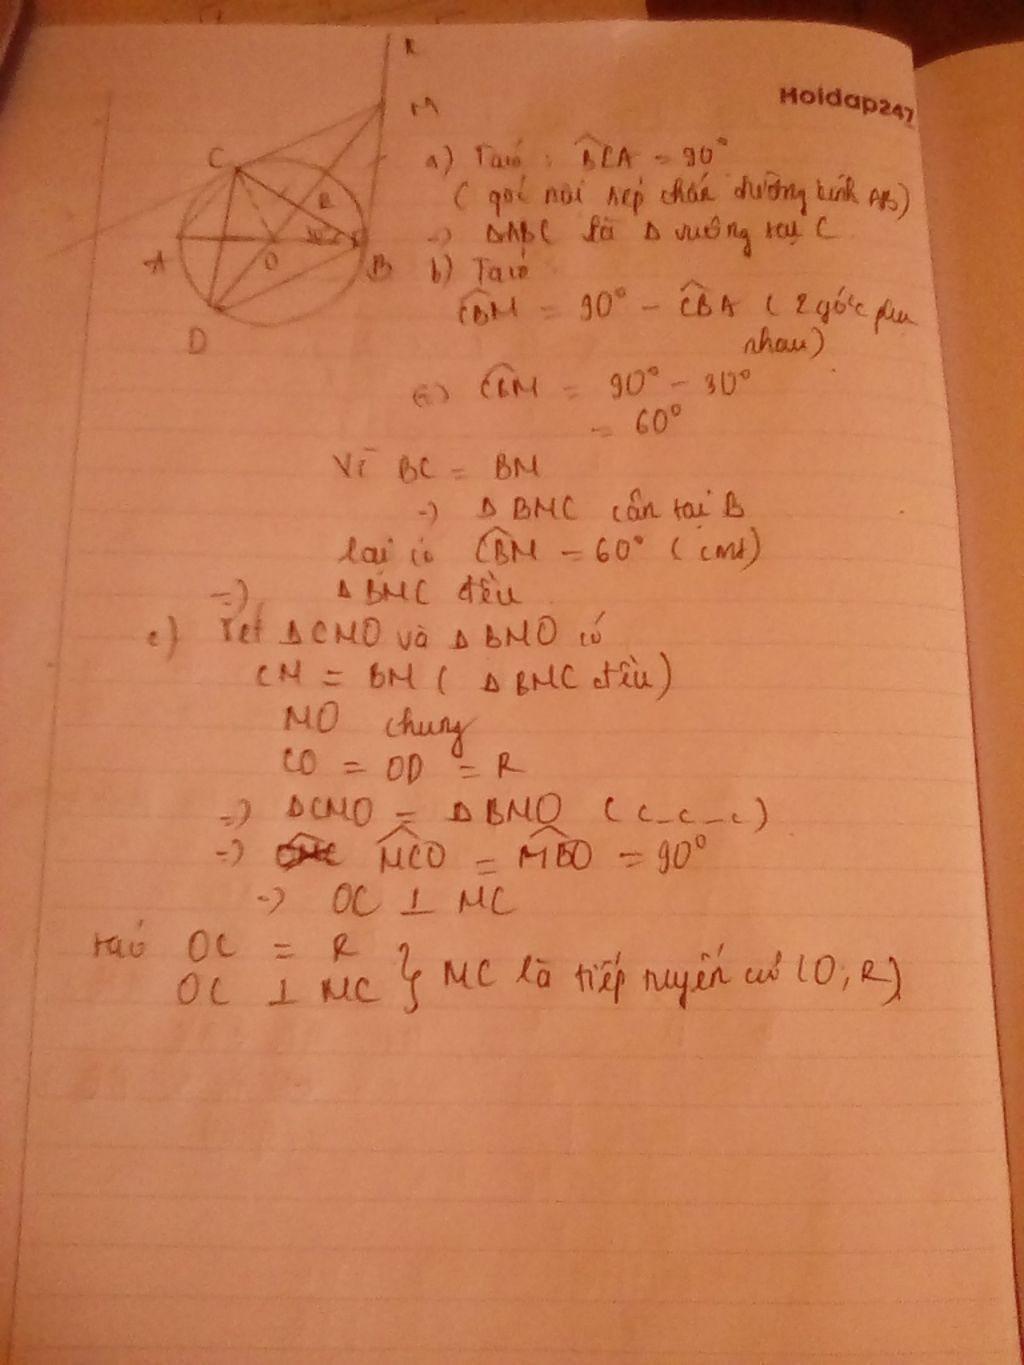 K
M
C
R
A
O
B
D
Hoidap247
a) Ta có : BCA = 90°
( góc nội tiếp chắn đường kính AB)
=> ΔABC là Δ vuông tại C
b) Ta có
CBM = 90° - CBA ( 2 góc phụ
nhau)
=> CBM = 90° - 30°
= 60°
Vì BC = BM
=> Δ BMC cân tại B
lại có CBM = 60° ( cmt)
=> Δ BMC đều
c) Xét ΔCMO và Δ BMO có
CM = BM ( Δ BMC đều)
MO chung
CO = OD = R
=> ΔCMO = Δ BMO ( c_c_c)
=> MCO = MBO = 90°
=> OC ⊥ MC
ta có OC = R
OC ⊥ MC } MC là tiếp tuyến củ (O, R)